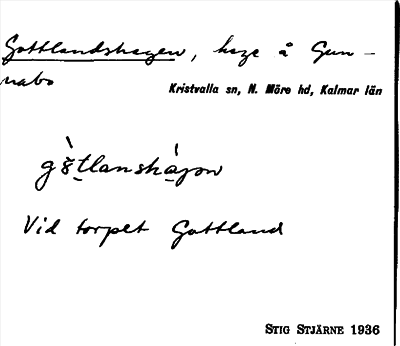 Gottlandshagen, hage å Gun-
nabo
Kristvalla sn, N. Möre hd, Kalmar län
Vid torpet Gottland
STIG STJÄRNE 1936